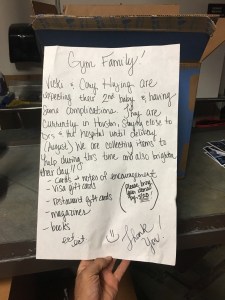 Gym Family!
Vicki & Clay Hying are
expecting their 2nd baby & having
some complications. They are
currently in Houston, staying close to
Drs & the hospital until delivery
(August). We are collecting items to
help during this time and also brighten
their day!!
- cards + notes of encouragement
- Visa gift cards
- restaurant gift cards
- magazines
- books
ect ect
(Please bring
your donations
by
Thank
You!